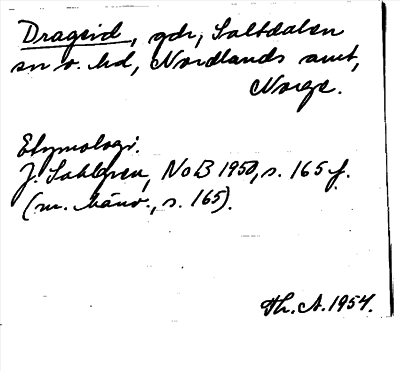 Drageid, gdr, Saltdalen
sn o. hd, Nordlands amt,
Norge.
Etymologi.
J. Sahlgren, NoB 1950, s. 165 f.
(m. hänv., s. 165).
Th. A. 1954.